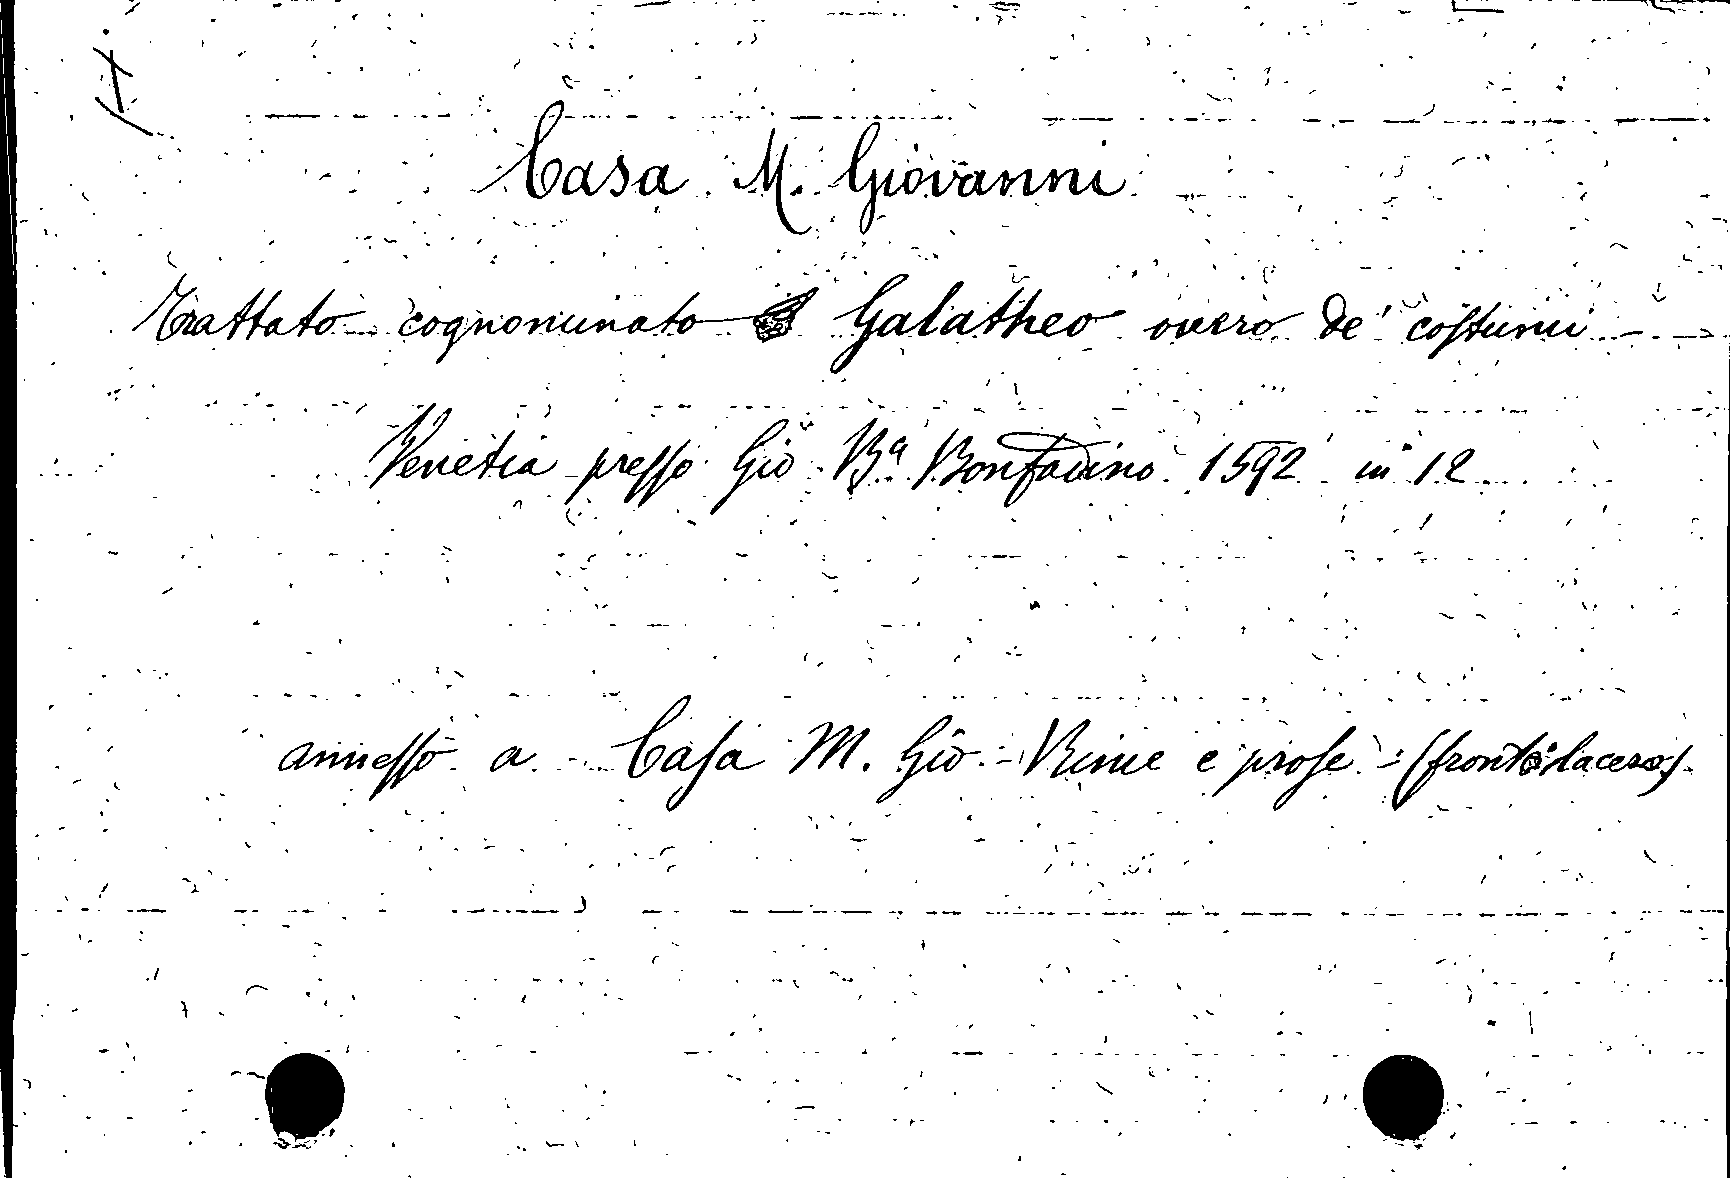 Casa M. Giovanni
Trattato cognominato Galatheo overo de' costumi
Venetia presso Gio Bª Bonfadino 1592 in 12
annesso a Casa M. Gio - Rime e prose - (front° lacero)